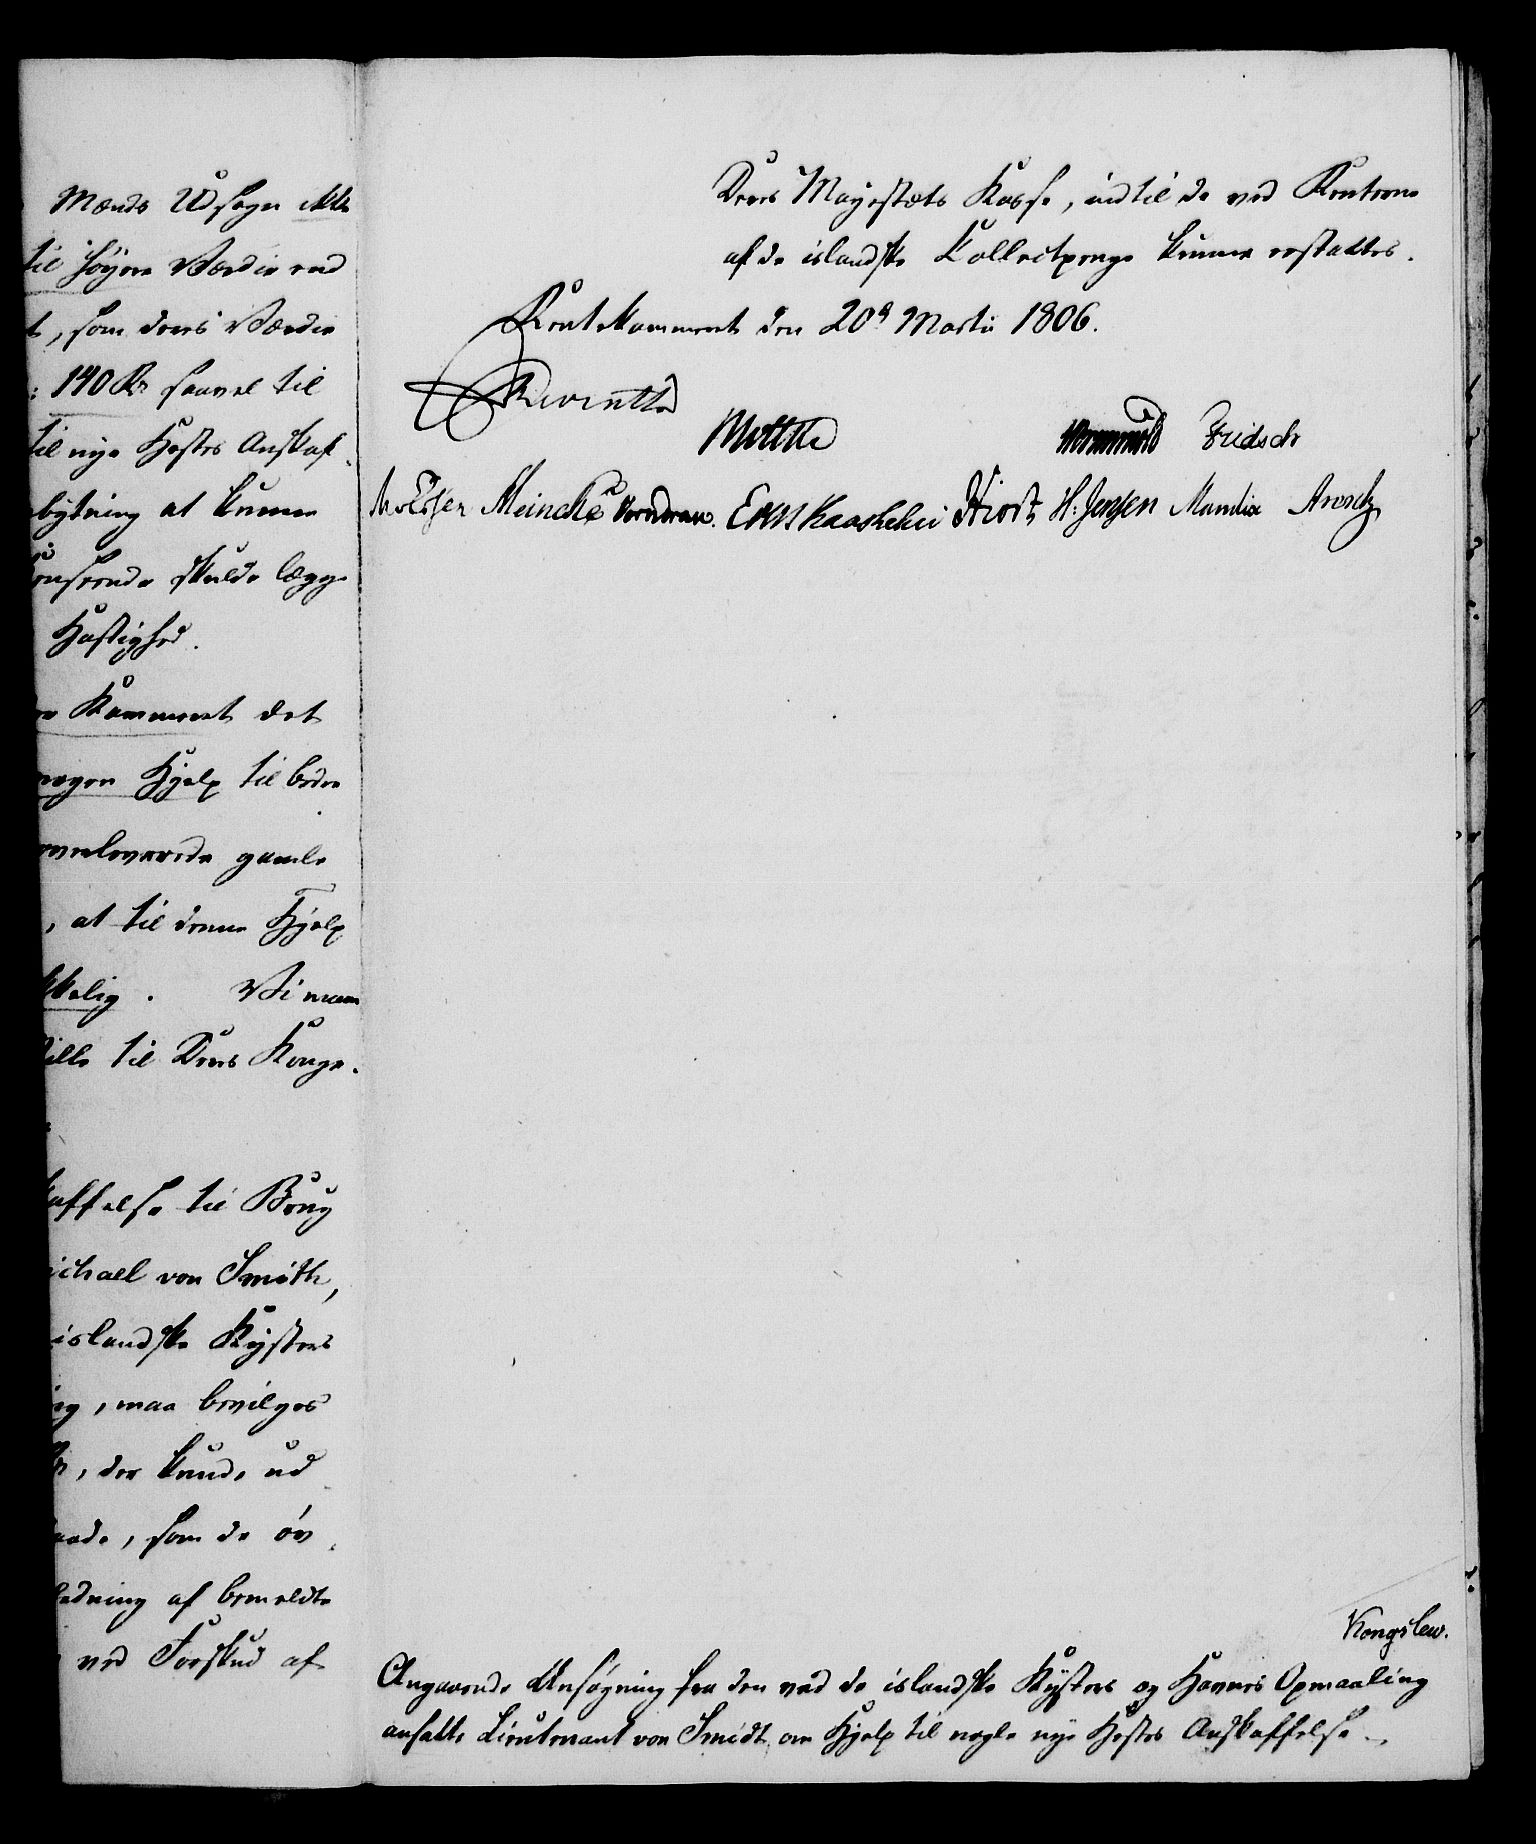 Mænds Udsagn ikke
til høyere Værdie end
, som deres Værdie
140 Rd saavel til
til nye Hestes Anskaf-
bytning at kunne
skulde lægge
Hastighed.
Kammeret det
nogen Hjelp til bedre
gamle
, at til denne Hjelp
kelig. Vi maae
stille til Deres Konge-
kaffelse til Brug
ichael von Smith,
islandske Kysters
ng, maa bevilges
, der kunde ud
maade, som de øv-
ledning af bemeldte
ved Forskud af
Deres Majestæts Kasse, indtil de ved Renterne
af de islandske Collectpenge kunne erstattes.
Rentekammeret den 20d Martii 1806.
Reventlow
Wormskiold Fridsch
Meincke Wormdran. Knashehei Hiort H: Jensen Mandix Arentz
Kongslew.
Angaaende Ansøgning fra den ved de islandske Kysters og Havnes Opmaaling
ansatte Lieutenant von Smidt om Hjelp til nogle nye Hestes Anskaffelse.